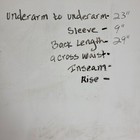 Underarm to underarm - 23"
Sleeve - 9"
Back Length - 29"
across waist -
Inseam -
Rise -